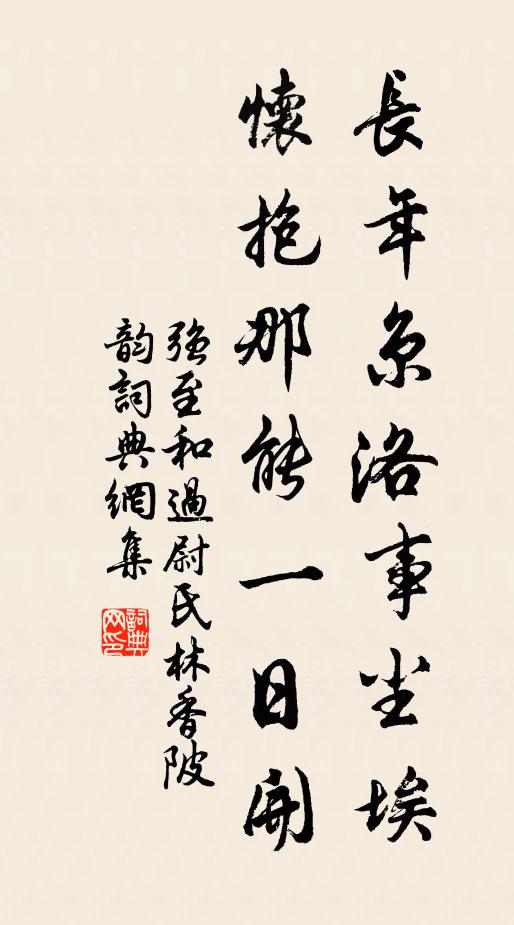 長年京洛事尘埃
懷抱那能一日開
強至和過尉氏林香陂
韵詞典網集
詞典